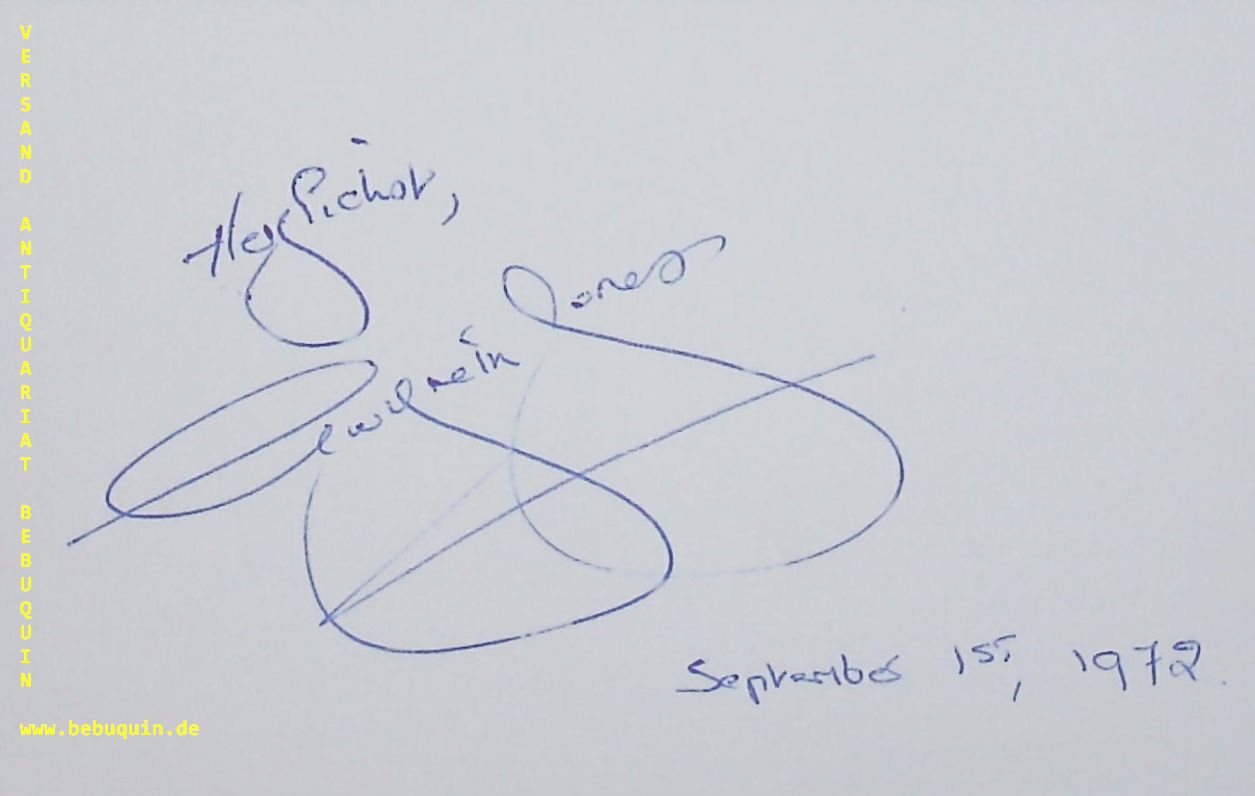 Herzlichst,
Gwyneth Jones
September 1st, 1972.
VERSAND ANTIQUARIAT BEBUQUIN
www.bebuquin.de